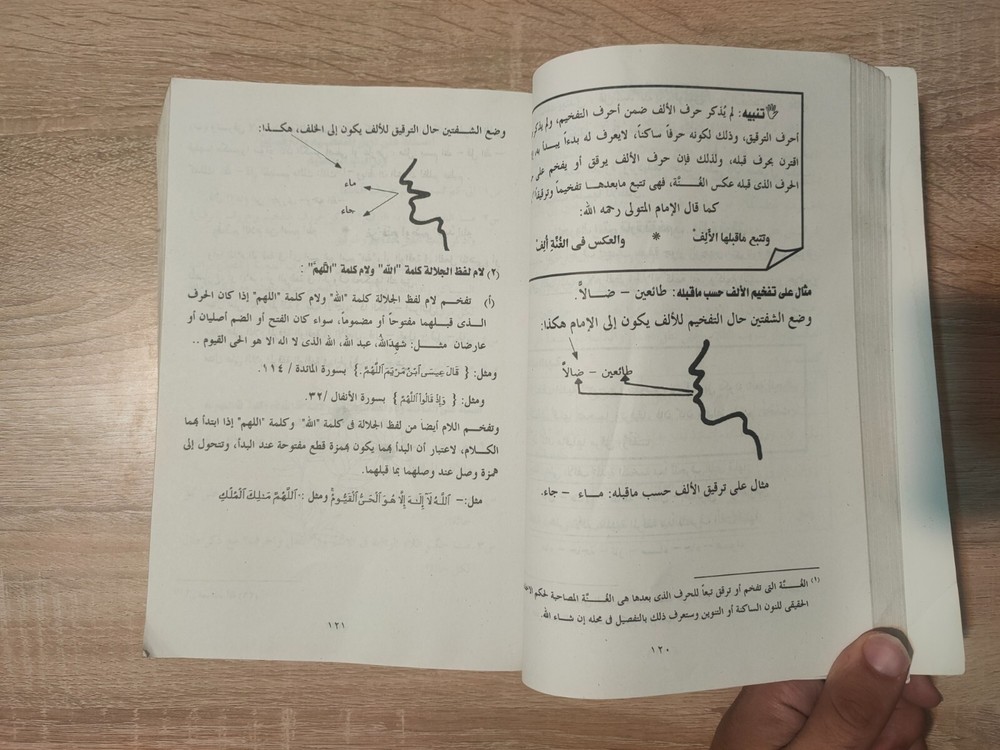 تنبيه: لم يُذكر حرف الألف ضمن أحرف التفخيم، ولم يذكر
أحرف الترقيق، وذلك لكونه حرفاً ساكناً، لايعرف له بدءاً يبدأ به،
اقترن بحرف قبله، ولذلك فإن حرف الألف يرقق أو يفخم على
الحرف الذى قبله عكس الغُـــنَّة، فهى تتبع مابعدهـا تفخيماً وترقيقاً
كما قال الإمام المتولى رحمه الله:
وتتبع ماقبلها الأَلِفْ * والعكس فى الغُنَّةِ أُلِفْ
مثال على تفخيم الألف حسب ماقبله: طائعين – ضــالاًّ.
وضع الشفتين حال التفخيم للألف يكون إلى الإمام هكذا:
طائعين – ضالاًّ
مثال على ترقيق الألف حسب ماقبله: مـاء – جاء.
(١) الغُـــنَّة التى تفخم أو ترقق تبعاً للحرف الذى بعدها هى الغُـنَّة المصاحبة لحكم
الحقيقى للنون الساكنة أو التنوين وستعرف ذلك بالتفصيل فى محله إن شاء الله.
١٢٠
وضع الشـفتين حال الترقيق للألف يكون إلى الخلف، هكـذا:
ماء
جاء
(٢) لام لفظ الجلالة كلمة "الله" ولام كلمة "اللَّهمَّ" :
(أ) تفخـم لام لفظ الجلالة كلمة "الله" ولام كلمة "اللهم" إذا كان الحرف
الـذى قبلـهما مفتوحاً أو مضموماً، سواء كان الفتح أو الضم أصليان أو
عارضان مثـل: شهِدَاللهُ، عبد الله، الله الذى لا اله الا هو الحى القيوم ..
ومثل: { قَالَ عِيسَى ٱبْنُ مَرْيَمَ ٱللَّهُمَّ .} بسورة المائدة / ١١٤.
ومثل: { وَإِذْ قَالُوا۟ ٱللَّهُمَّ } بسورة الأنفال /٣٢.
وتفخـم اللام أيضا من لفظ الجلالة فى كلمة "الله" وكلمة "اللهم" إذا ابتدأ بهما
الكـلام، لاعتبار أن البدأ بهما يكون بهمزة قطع مفتوحة عند البدأ، وتتحول إلى
همزة وصل عند وصلهما بما قبلهما.
مثل:– ٱللَّهُ لَآ إِلَـٰهَ إِلَّا هُوَ ٱلْحَىُّ ٱلْقَيُّومُ ومثل :٠ ٱللَّهُمَّ مَـٰلِكَ ٱلْمُلْكِ
١٢١